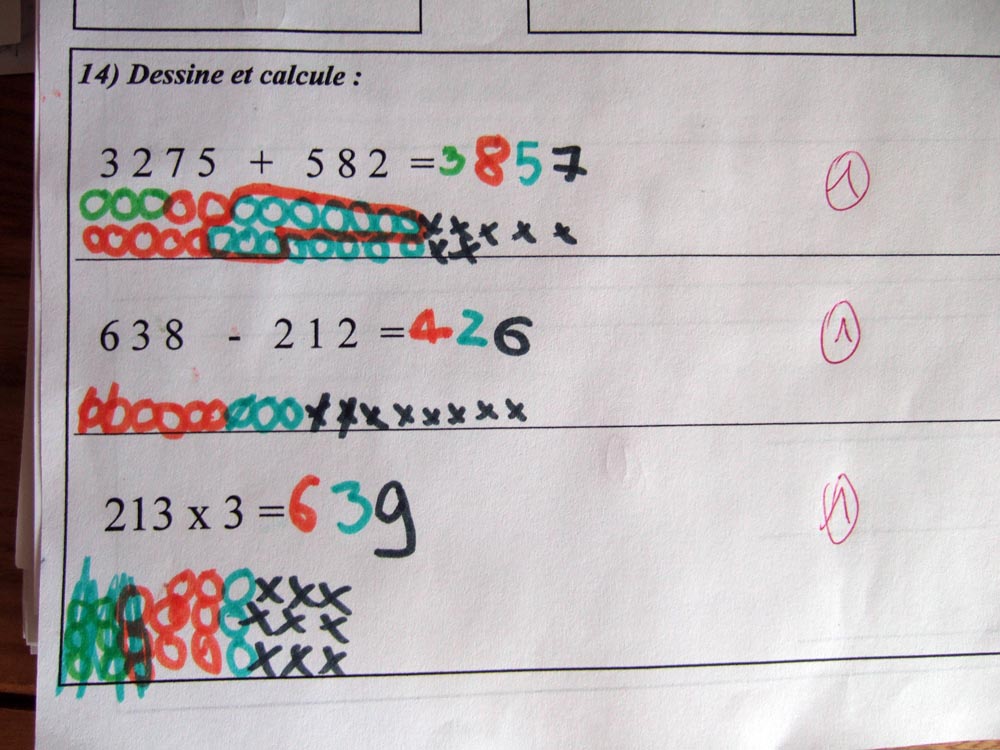 14) Dessine et calcule :
3 2 7 5 + 5 8 2 = 3 8 5 7
1
6 3 8 - 2 1 2 = 4 2 6
1
213 x 3 = 6 3 9
1